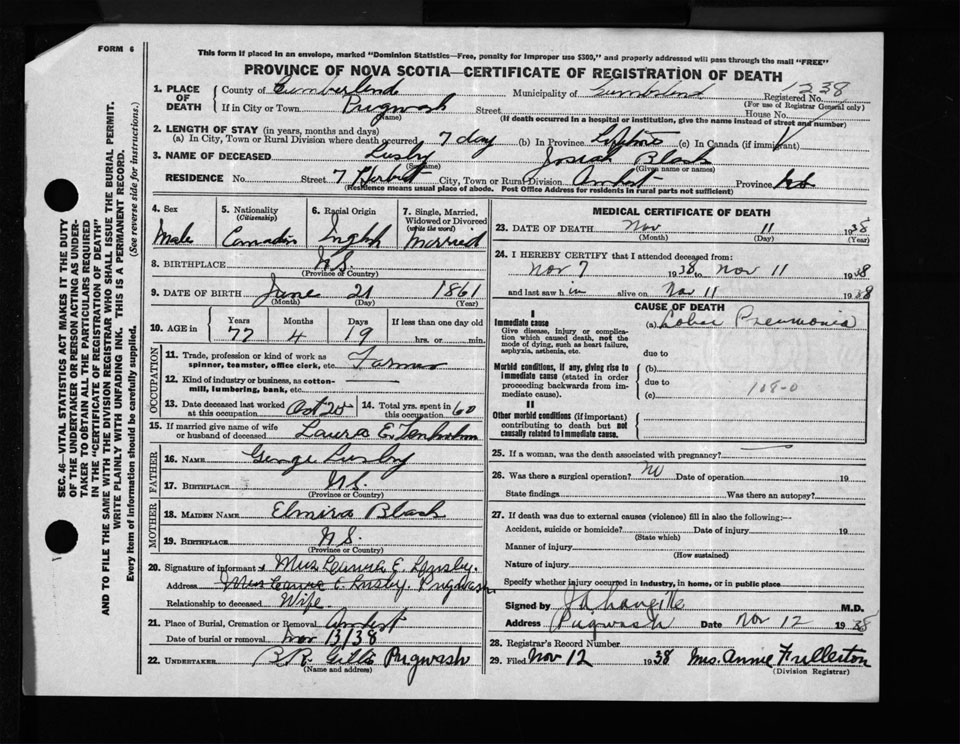 FORM 6
This form if placed in an envelope, marked "Dominion Statistics—Free, penalty for improper use $300," and properly addressed will pass through the mail "FREE"
PROVINCE OF NOVA SCOTIA—CERTIFICATE OF REGISTRATION OF DEATH
SEC. 46—VITAL STATISTICS ACT MAKES IT THE DUTY
OF THE UNDERTAKER OR PERSON ACTING AS UNDER-
TAKER TO OBTAIN ALL THE PARTICULARS REQUIRED
IN THE "CERTIFICATE OF REGISTRATION OF DEATH"
AND TO FILE THE SAME WITH THE DIVISION REGISTRAR WHO SHALL ISSUE THE BURIAL PERMIT.
WRITE PLAINLY WITH UNFADING INK. THIS IS A PERMANENT RECORD.
Every item of information should be carefully supplied. (See reverse side for instructions.)
1. PLACE OF DEATH
County of Cumberland Municipality of Cumberland Registered No. 1238
(For use of Registrar General only)
If in City or Town Pugwash Street House No.
(Name) (If death occurred in a hospital or institution, give the name instead of street and number)
2. LENGTH OF STAY (in years, months and days)
(a) In City, Town or Rural Division where death occurred 7 day (b) In Province Lifetime (c) In Canada (if immigrant)
3. NAME OF DECEASED Lusby Josiah Black
(Surname) (Given name or names)
RESIDENCE No. Street 7 Herbet City, Town or Rural Division Amherst Province N.S.
(Residence means usual place of abode. Post Office Address for residents in rural parts not sufficient)
4. Sex
Male
5. Nationality
(Citizenship)
Canadian
6. Racial Origin
English
7. Single, Married,
Widowed or Divorced
(write the word)
Married
8. BIRTHPLACE N.S.
(Province or Country)
9. DATE OF BIRTH June 21 1861
(Month) (Day) (Year)
10. AGE in Years Months Days If less than one day old
77 4 19 hrs. or min.
OCCUPATION
11. Trade, profession or kind of work as
spinner, teamster, office clerk, etc. Farmer
12. Kind of industry or business, as cotton-
mill, lumbering, bank, etc.
13. Date deceased last worked
at this occupation Oct 20
14. Total yrs. spent in
this occupation 60
15. If married give name of wife
or husband of deceased Laura E.
FATHER
16. NAME George Lusby
17. BIRTHPLACE N.S.
(Province or Country)
MOTHER
18. MAIDEN NAME Elmira Black
19. BIRTHPLACE N.S.
(Province or Country)
20. Signature of informant Mrs Laura E. Lusby.
Address Mrs Laura E. Lusby. Pugwash
Relationship to deceased Wife
21. Place of Burial, Cremation or Removal Amherst
Date of burial or removal Nov 13/38
22. UNDERTAKER B.R. Pugwash
(Name and address)
MEDICAL CERTIFICATE OF DEATH
23. DATE OF DEATH Nov 11 1938
(Month) (Day) (Year)
24. I HEREBY CERTIFY that I attended deceased from:
Nov 7 1938 to Nov 11 1938
and last saw him alive on Nov 11 1938
CAUSE OF DEATH
I
Immediate cause (a) Lobar Pneumonia
Give disease, injury or complica-
tion which caused death, not the
mode of dying, such as heart failure,
asphyxia, asthenia, etc.
due to
Morbid conditions, if any, giving rise to
immediate cause (stated in order
proceeding backwards from im-
mediate cause).
(b)
due to
(c) 108-0
II
Other morbid conditions (if important)
contributing to death but not
causally related to immediate cause.
25. If a woman, was the death associated with pregnancy?
26. Was there a surgical operation? No Date of operation 19
State findings Was there an autopsy?
27. If death was due to external causes (violence) fill in also the following:—
Accident, suicide or homicide? Date of injury 19
(State which)
Manner of injury
(How sustained)
Nature of injury
Specify whether injury occurred in industry, in home, or in public place
Signed by M.D.
Address Pugwash Date Nov 12 1938
28. Registrar's Record Number
29. Filed Nov 12 1938 Mrs. Annie Fullerton
(Division Registrar)